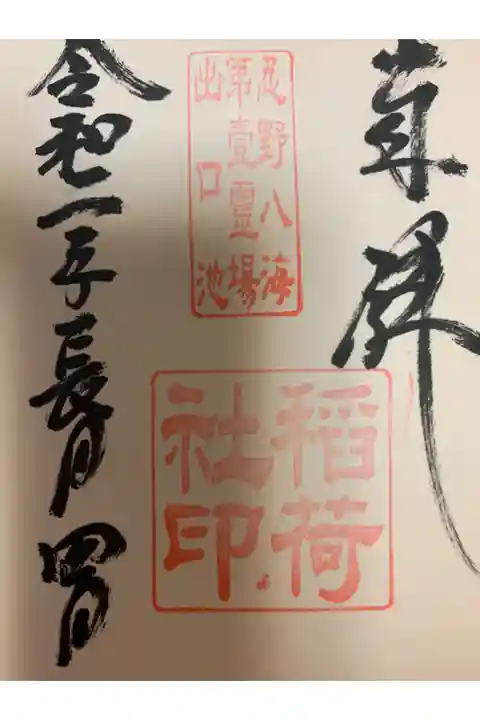 奉拝
忍野八海
第壹靈場
出口池
稻荷
社印
令和二年長月四日